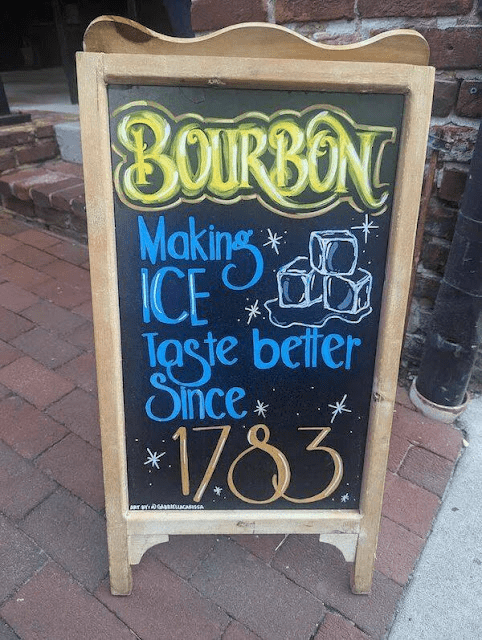 BOURBON
Making
ICE
Taste better
Since
1783
ART BY: @GABRIELLACARISSA